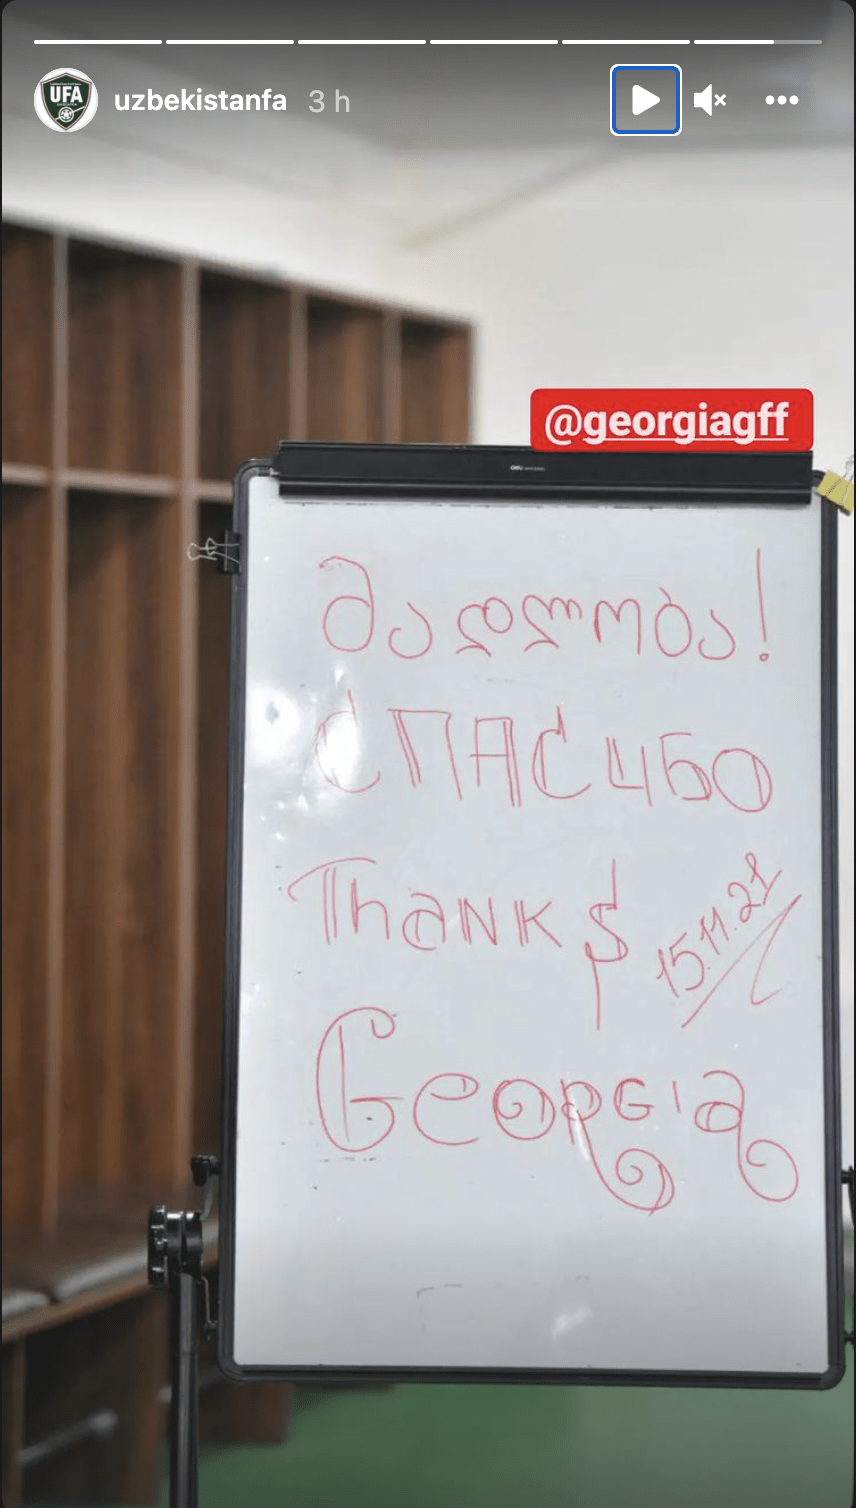 UFA
uzbekistanfa 3 h
@georgiagff
მადლობა!
СПАСИБО
Thanks
15.11.21
Georgia